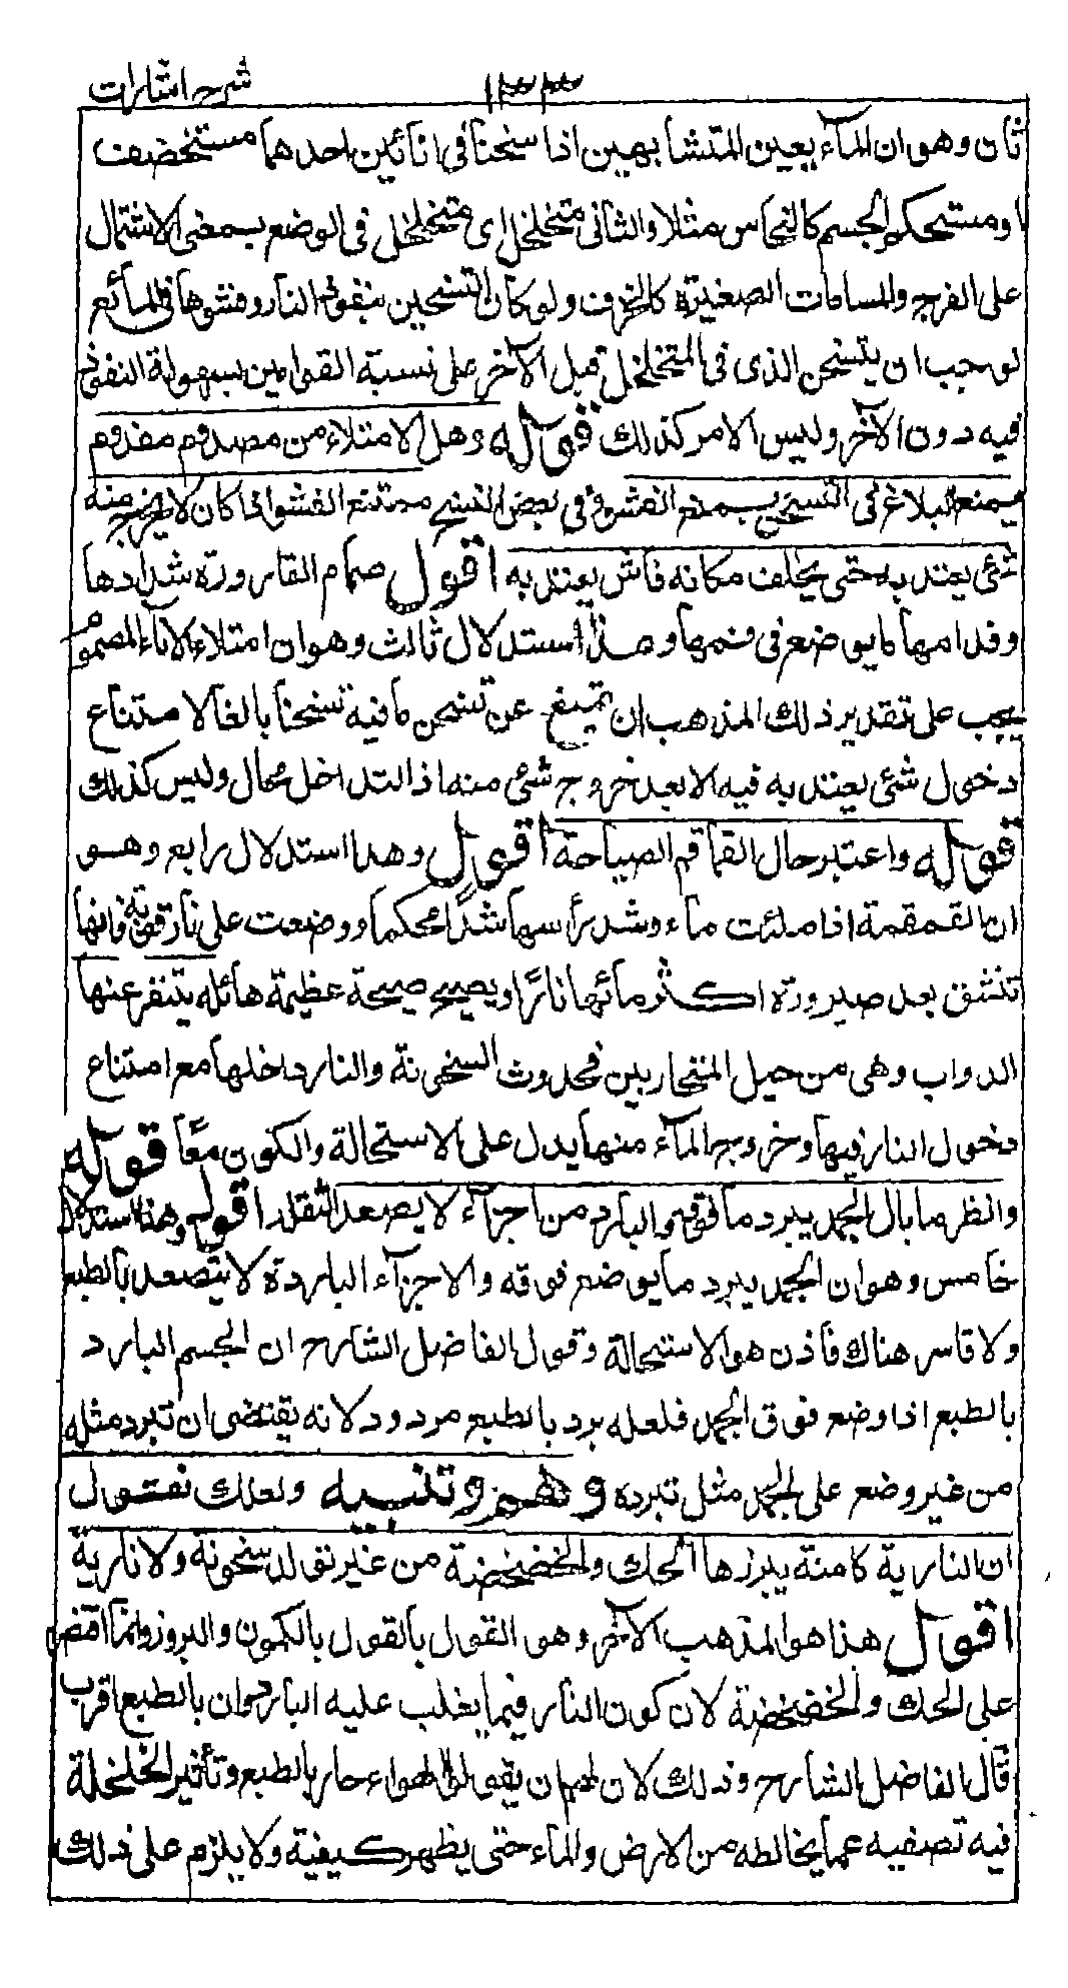 شرح اشارات
۱۳۳
ثان وهو ان الماء يعين المتشابهين اذا سخنا فى انائين احدهما مستخضف
ا ومستحكم الجسم كالنحاس مثلا والثانى متخلخل اى متخلخل فى الوضع بمعنى الاشتمال
على الفرج والمسامات الصغيرة كالخزف ولو كان التسخين بنفوذ النار وفشوها فى المائع
لوجب ان يتسخن الذى فى المتخلخل قبل الآخر على نسبة القوامين لسهولة النفوذ
فيه دون الآخر وليس الامر كذلك قوله وهل الامتلاء من مصدوم مفدوم
يمنع البلاغ فى التسخن بمنع الفشو وفى بعض النسخ ممتنع الفشو اذا كان لا يخرج منه
شئ يعتد به حتى يخلف مكانه فاش يعتد به اقول صمام القارورة شدادها
وفدامها ما يوضع فى فمها وهذا استدلال ثالث وهو ان امتلاء الاناء المصموم
يجب على تقدير ذلك المذهب ان يمنع عن تسخن ما فيه تسخنا بالغا لامتناع
دخول شئ يعتد به فيه الا بعد خروج شئ منه اذ التداخل محال وليس كذلك
قوله واعتبر حال القماقم الصياحة اقول وهذا استدلال رابع وهو
ان القمقمة اذا ملئت ماء وشد رأسها شدًا محكما ووضعت على نار قوية فانها
تنشق بعد صيرورة اكثر مائها نارًا ويصيح صيحة عظيمة هائله يتنفر عنها
الدواب وهى من حيل المتحاربين فحدوث السخونة والنار داخلها مع امتناع
دخول النار فيها وخروج الماء منها يدل على الاستحالة والكون معًا قوله
وانظر ما بال الجمد يبرد ما فوقه والبارد من اجزآءه لا يصعد لثقله اقول وهذا استدلال
خامس وهو ان الجمد يبرد ما يوضع فوقه والاجزآء الباردة لا يتصعد بالطبع
ولا قاسر هناك فاذن هو الاستحالة وقول الفاضل الشارح ان الجسم البارد
بالطبع اذا وضع فوق الجمد فلعله برد بالطبع مردود لانه يقتضى ان تبرد مثله
من غير وضع على الجمد مثل تبرده وهم وتنبيه ولعلك تقول
ان النارية كامنة يبرزها الحك والخضخضة من غير تولد سخونة ولا نارية
اقول هذا هو المذهب الآخر وهو القول بالقول بالكمون والبروز وانما اقتصر
على الحك والخضخضة لان كون النار فيما يغلب عليه البارد وان بالطبع اقرب
قال الفاضل الشارح وذلك لان لهم ان يقولوا الهواء حار بالطبع وتأثير الخلخلة
فيه تصفيه عما يخالطه من الارض والماء حتى يظهر كيفية ولا يلزم على ذلك